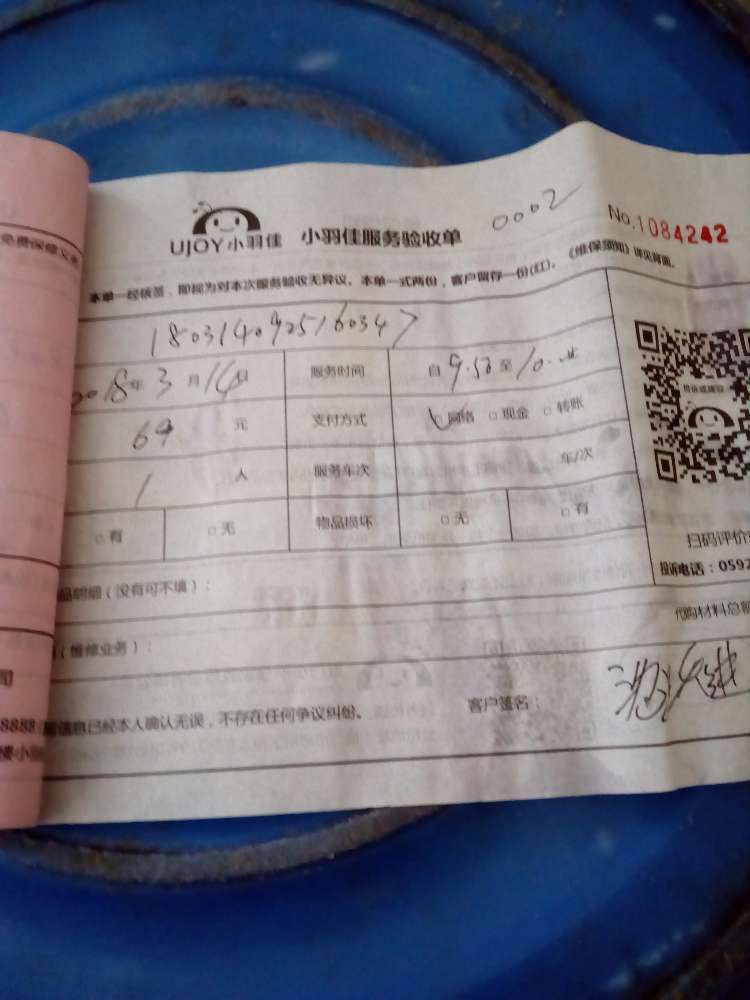 免费保修义务
UJOY小羽佳 小羽佳服务验收单 0002 No.1084242
本单一经核签，即视为对本次服务验收无异议。本单一式两份，客户留存一份(红)。《维保须知》详见背面。
1803140925160347
2018年3月14日 服务时间 自9.50至10.
69元 支付方式 网络 □现金 □转账
1人 服务车次 车/次
□有 □无 物品损坏 □无 □有
扫码评价
品明细（没有可不填）： 投诉电话：0592
（维修业务）： 代购材料总额
司
8888 信息已经本人确认无误，不存在任何争议纠纷。 客户签名：
楼小羽